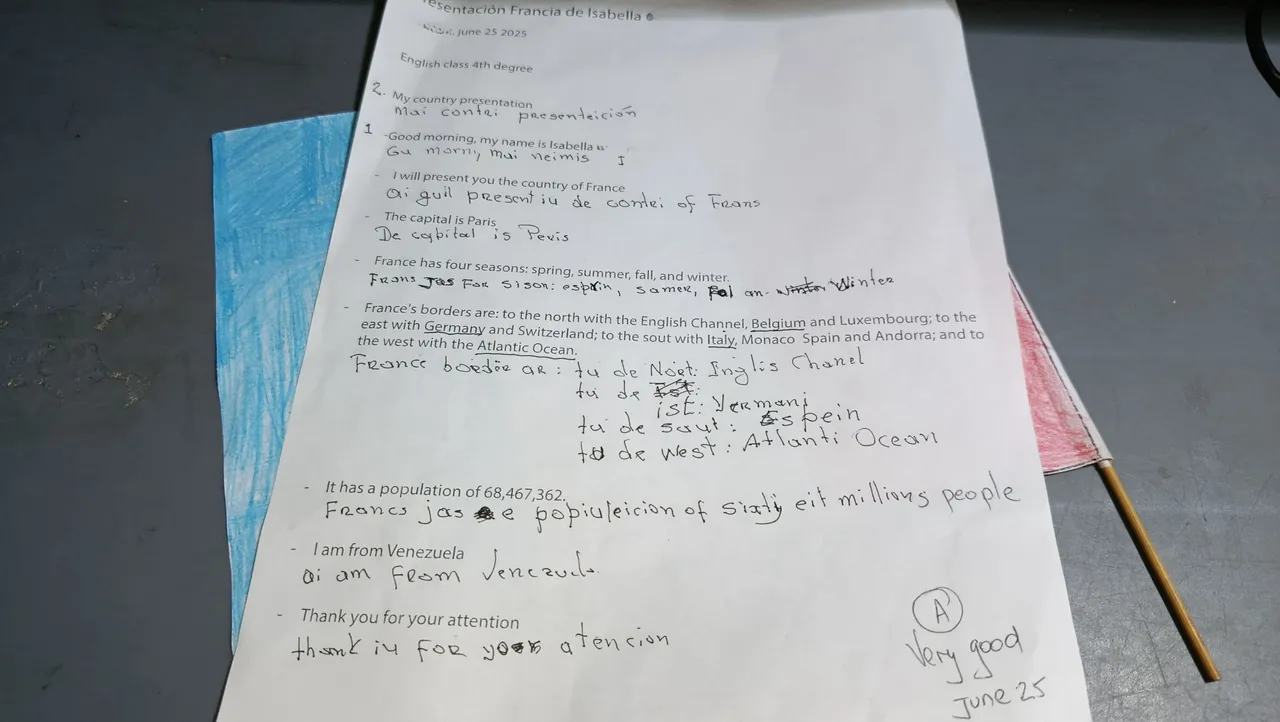 esentación Francia de Isabella
June 25 2025
English class 4th degree
2. My country presentation
Mai contri presenteición
1 -Good morning, my name is Isabella
Gu morni, mai neimis I
- I will present you the country of France
ai guil present iu de contri of Frans
- The capital is Paris
De capital is Peris
- France has four seasons: spring, summer, fall, and winter.
Frans jas For sison: esprin, samer, fal an Winter
- France's borders are: to the north with the English Channel, Belgium and Luxembourg; to the
east with Germany and Switzerland; to the sout with Italy, Monaco Spain and Andorra; and to
the west with the Atlantic Ocean.
France border ar: tu de Nort: Inglis Chanel
tu de
ist: Yermani
tu de saut: Espein
to de west: Atlanti Ocean
- It has a population of 68,467,362.
Francs jas e popiuleicion of sixty eit millions people
- I am from Venezuela
ai am from Venezuela
- Thank you for your attention
thank iu for your atencion
A
Very good
June 25